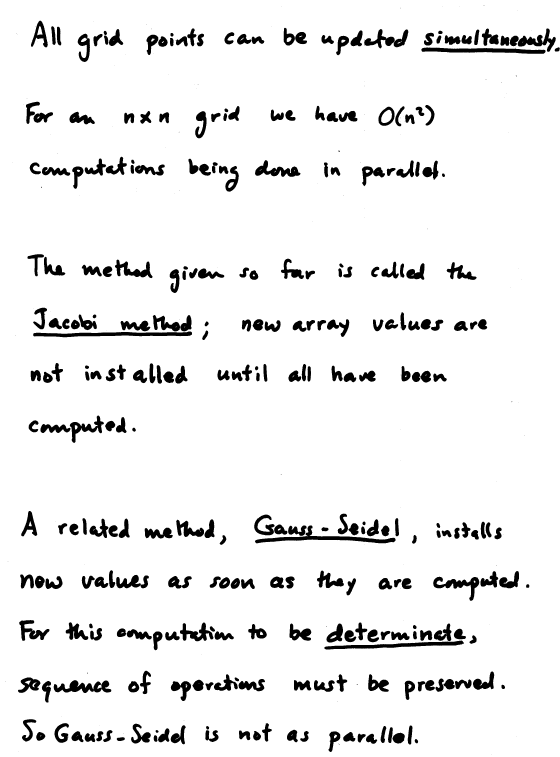 All grid points can be updated simultaneously.
For an n×n grid we have O(n²)
computations being done in parallel.
The method given so far is called the
Jacobi method; new array values are
not installed until all have been
computed.
A related method, Gauss-Seidel, installs
new values as soon as they are computed.
For this computation to be determinate,
sequence of operations must be preserved.
So Gauss-Seidel is not as parallel.